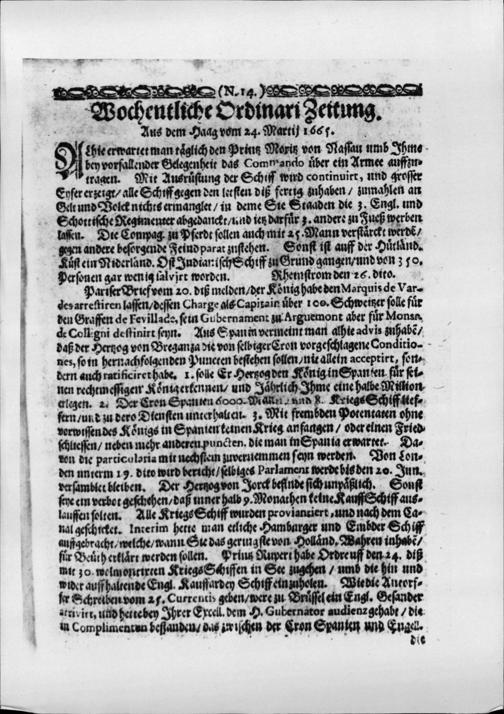 (N. 14.)
Wochentliche Ordinari Zeitung.
Aus dem Haag vom 24. Martij 1665.
Alhie erwartet man täglich den Printz Moritz von Nassau umb Ihme
bey vorfallender Gelegenheit das Commando über ein Armee auffzu-
tragen. Mit Ausrüstung der Schiff wird continuirt, und grosser
Eyfer erzeigt/ alle Schiff gegen den letsten diß fertig zuhaben/ zumahlen an
Gelt und Volck nichts ermanglet/ in deme die Staaden die 3. Engl. und
Schottische Regimenter abgedanckt/ und jetz darfür 3. andere zu Fueß werben
lassen. Die Compag. zu Pferdt sollen auch mit 25. Mann verstärckt werdē/
gegen andere besorgende Feind parat zustehen. Sonst ist auff der Hütland.
Küst ein Niderländ. Ost Indianisch Schiff zu Grund gangen/ und von 350.
Personen gar wenig salvirt worden. Rheinstrom den 26. dito.
Pariser Brief vom 20. diß melden/ der König habe den Marquis de Var-
des arrestiren lassen/ dessen Charge als Capitain über 100. Schweitzer solle für
den Graffen de Fevillade, sein Gubernament zu Arguemort aber für Monsr.
de Collegni destinirt seyn. Aus Spanien vermeint man alhie advis zuhabē/
daß der Hertzog von Breganza die von selbiger Cron vorgeschlagene Conditio-
nes, so in hernachfolgenden Puncten bestehen sollen/ nit allein acceptirt, son-
dern auch ratificiret habe. 1. solle Er Hertzog den König in Spanien für sei-
nen rechtmessigen König erkennen/ und Jährlich Ihme eine halbe Million
erlegen. 2. Der Cron Spanien 6000. Mann/ und 8. Kriegs Schiff lief-
fern/ und zu dero Diensten unterhalten. 3. Mit frembden Potentaten ohne
vorwissen des Königs in Spanien keinen Krieg anfangen/ oder einen Fried
schliessen/ neben mehr anderen puncten, die man in Spania erwartet. Da-
von die particularia mit nechstem zuvernemmen seyn werden. Von Lon-
den unterm 19. dito wird bericht/ selbiges Parlament werde bis den 20. Jun.
versamblet bleiben. Der Hertzog von Jorck befinde sich unpäßlich. Sonst
seye ein verbot geschehen/ daß innerhalb 9. Monathen keine Kauff Schiff aus-
lauffen solten. Alle Kriegs Schiff wurden proviantiert, und nach dem Ca-
nal geschicket. Interim hette man etliche Hamburger und Embder Schiff
auffgebracht/ welche/ wann Sie das geringste von Holländ. Wahren inhabē/
für Beuth erklärt werden sollen. Prinz Ruperi habe Ordre auff den 24. diß
mit 30. wolmontirten Kriegs Schiffen in See zugehen/ umb die hin und
wider auffhaltende Engl. Kauffardey Schiff einzuholen. Wie die Antorf-
fer Schreiben vom 25. Currentis geben/ were zu Brüssel ein Engl. Gesander
arrivirt, und hette bey Ihrer Excell. dem H. Gubernator audienz gehabt/ die
in Complimenten bestanden/ das zwischen der Cron Spanien und Engell.
die